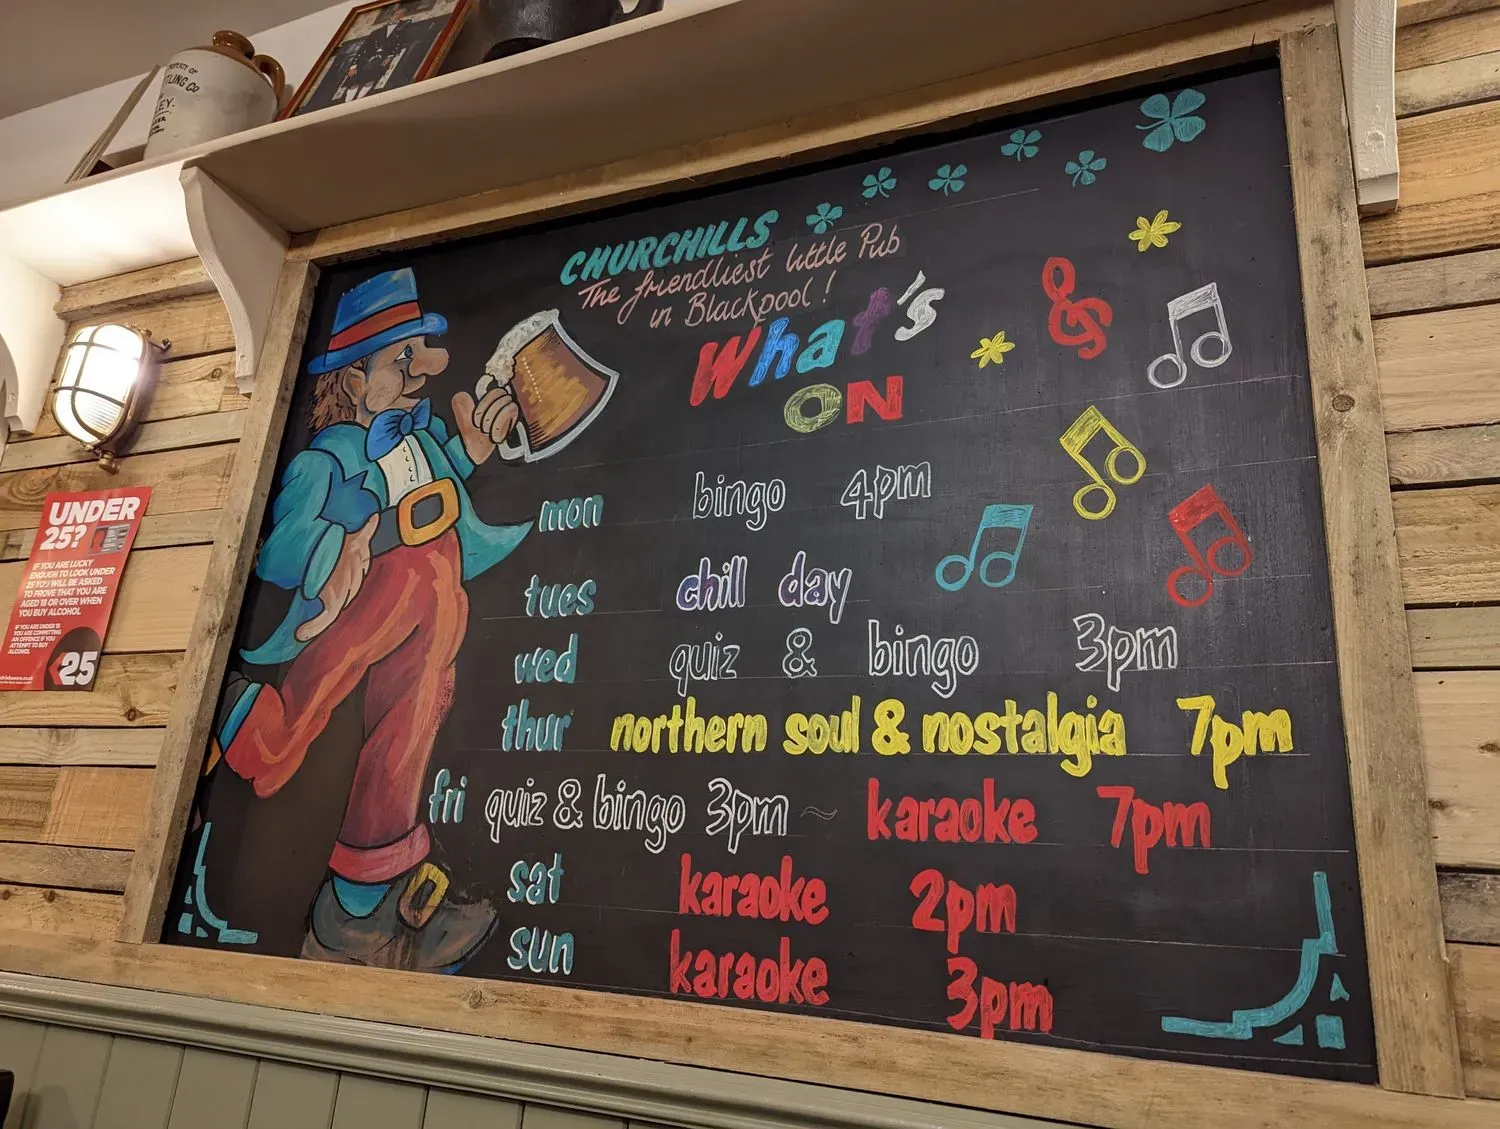 PROPERTY OF
TLING CO
EY.
CHURCHILLS
The friendliest little Pub
in Blackpool!
What's
ON
mon bingo 4pm
tues chill day
wed quiz & bingo 3pm
thur northern soul & nostalgia 7pm
fri quiz & bingo 3pm ~ karaoke 7pm
sat karaoke 2pm
sun karaoke 3pm
UNDER
25?
IF YOU ARE LUCKY
ENOUGH TO LOOK UNDER
25 YOU WILL BE ASKED
TO PROVE THAT YOU ARE
AGED 18 OR OVER WHEN
YOU BUY ALCOHOL
IF YOU ARE UNDER 18
YOU ARE COMMITTING
AN OFFENCE IF YOU
ATTEMPT TO BUY
ALCOHOL
25